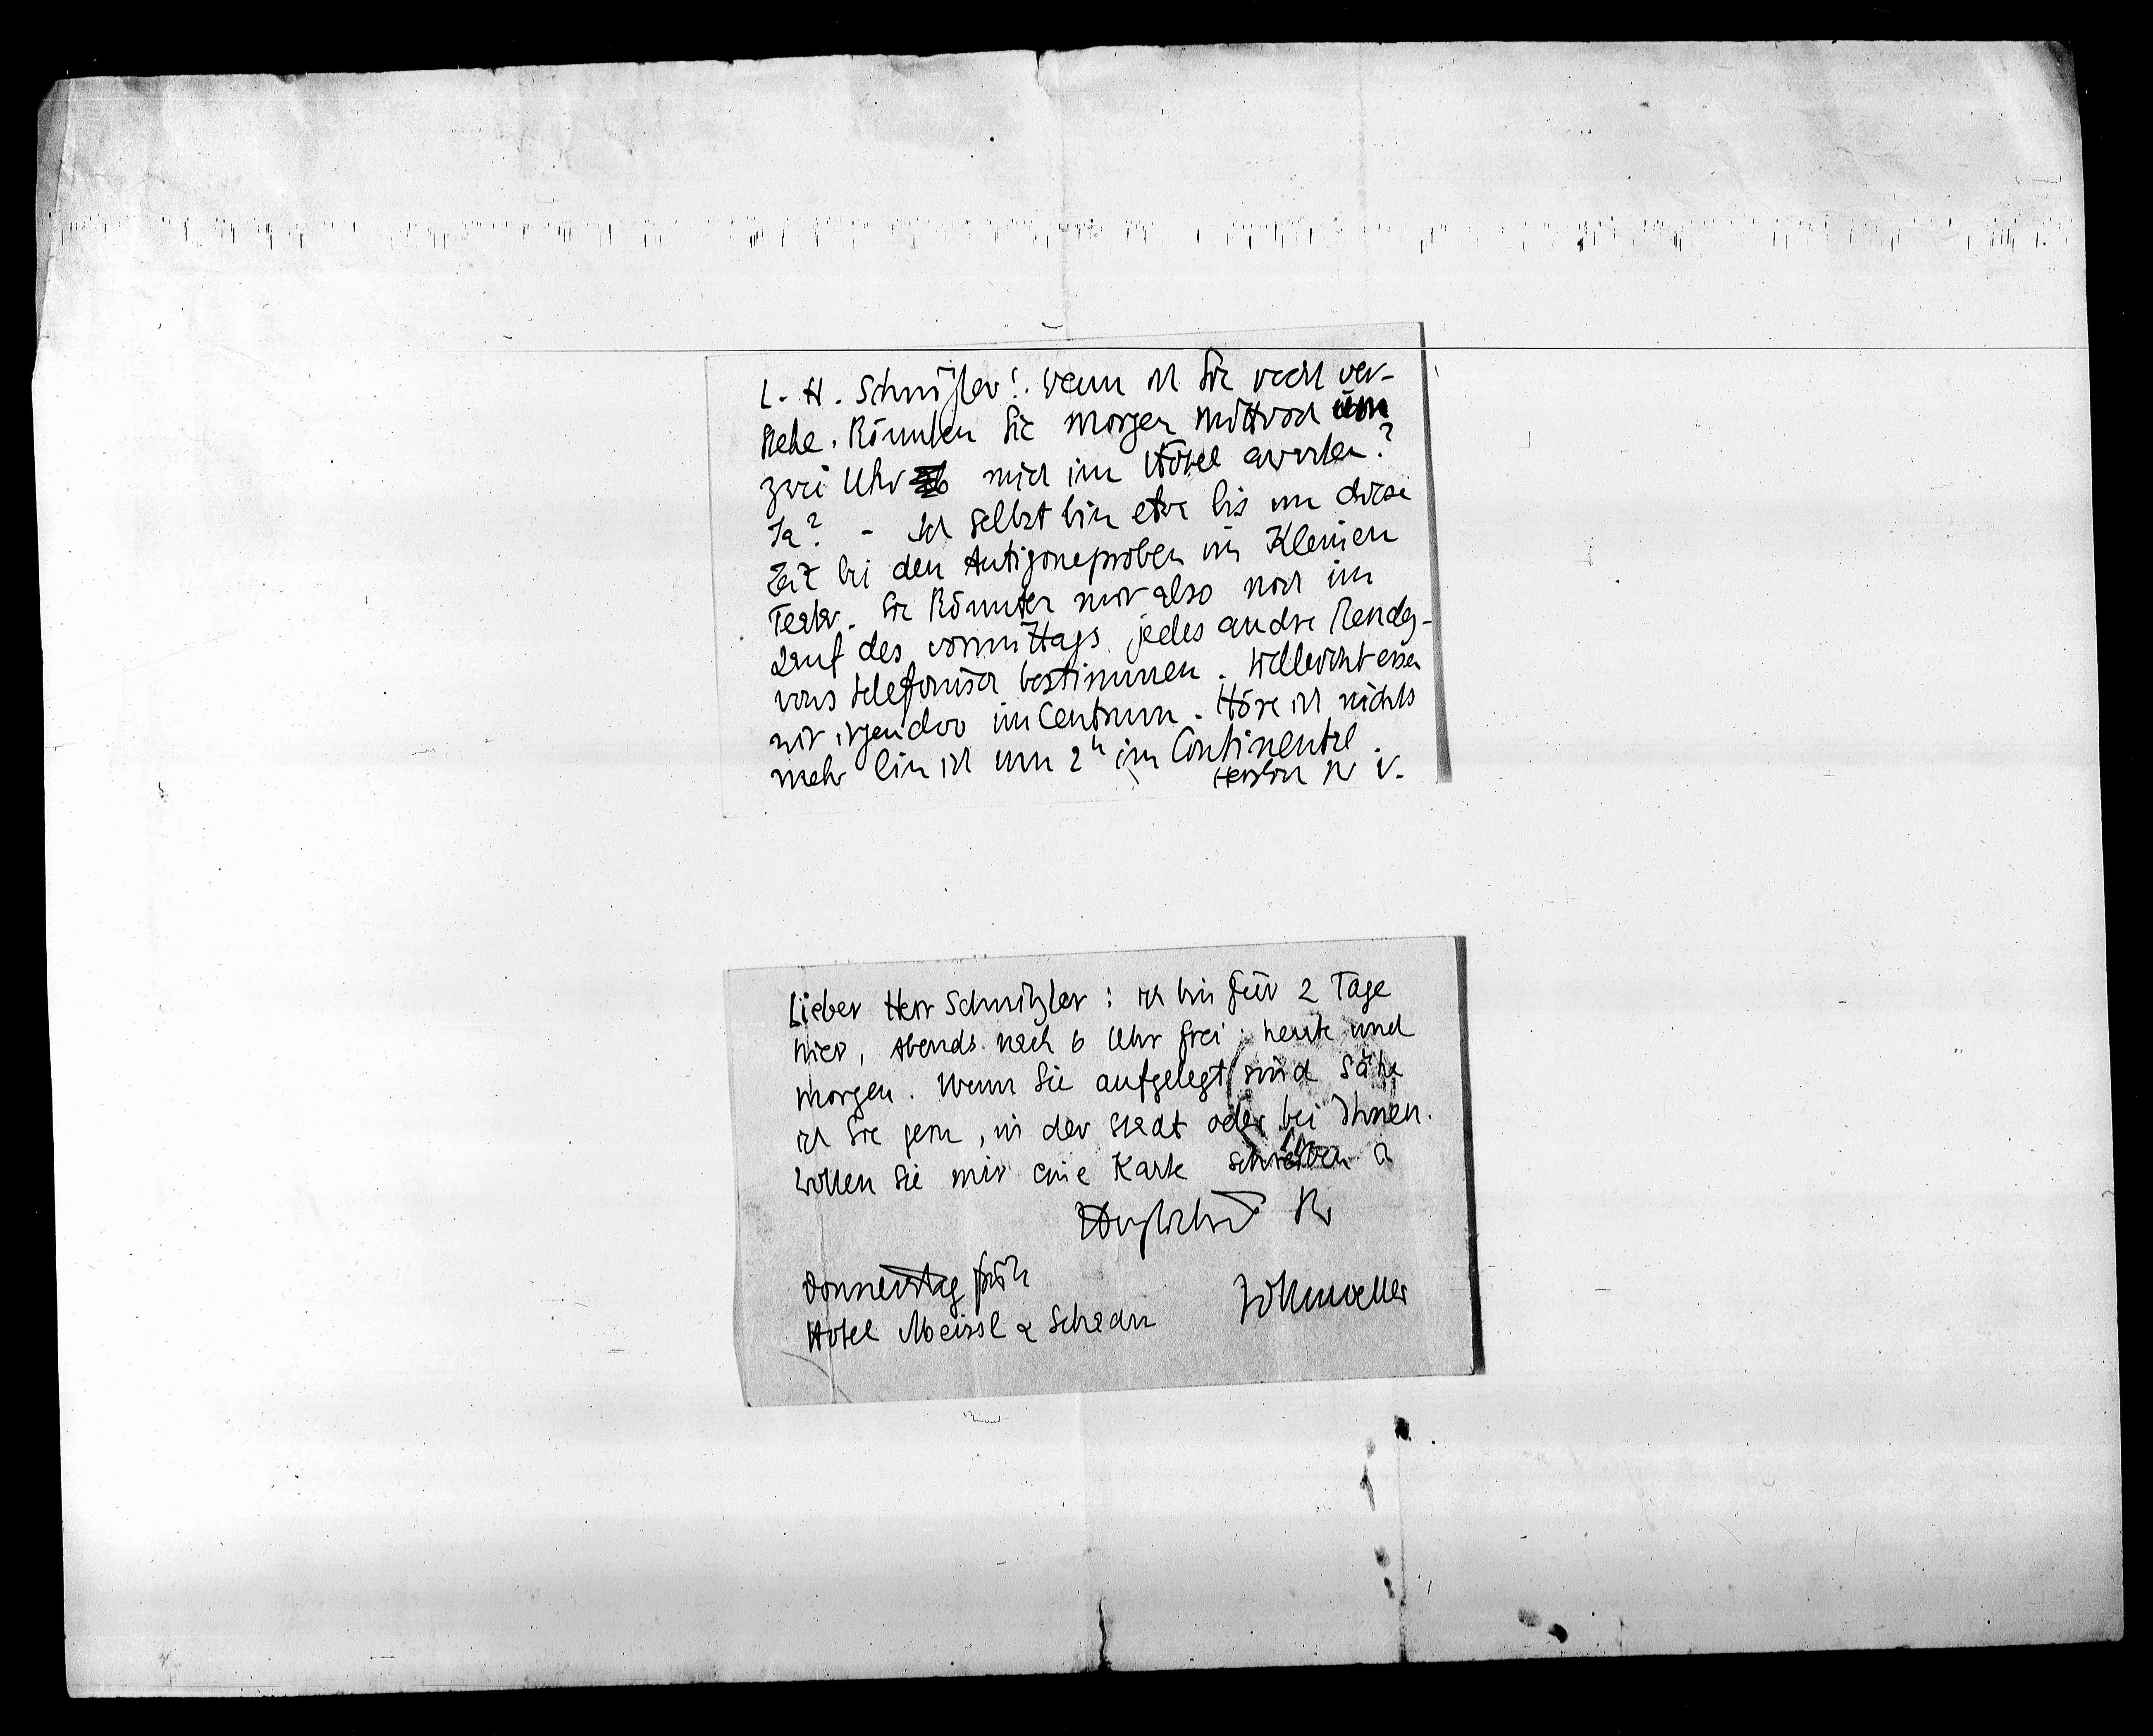 L. H. Schnitzler! Wenn ich Sie recht ver-
stehe. Könnten Sie morgen Mittwoch um
zwei Uhr mich im Hôtel erwarten?
Ja? – Ich selbst bin etwa bis um diese
Zeit bei den Antigoneproben im Kleinen
Teater. Sie könnten mir also noch im
Lauf des vormittags jedes andre Rendez-
vous telefonisch bestimmen. Vielleicht essen
wir irgendwo im Centrum. Höre ich nichts
mehr bin ich um 2 h im Continental.
Herzlich Ihr V.
Lieber Herr Schnitzler: ich bin für 2 Tage
hier, Abends nach 6 Uhr frei; heute und
morgen. Wenn Sie aufgelegt sind sähe
ich Sie gern, in der Stadt oder bei Ihnen.
Wollen Sie mir eine Karte schreiben?
Herzlichst Ihr
Donnerstag früh
Vollmoeller
Hotel Meissl & Schadn